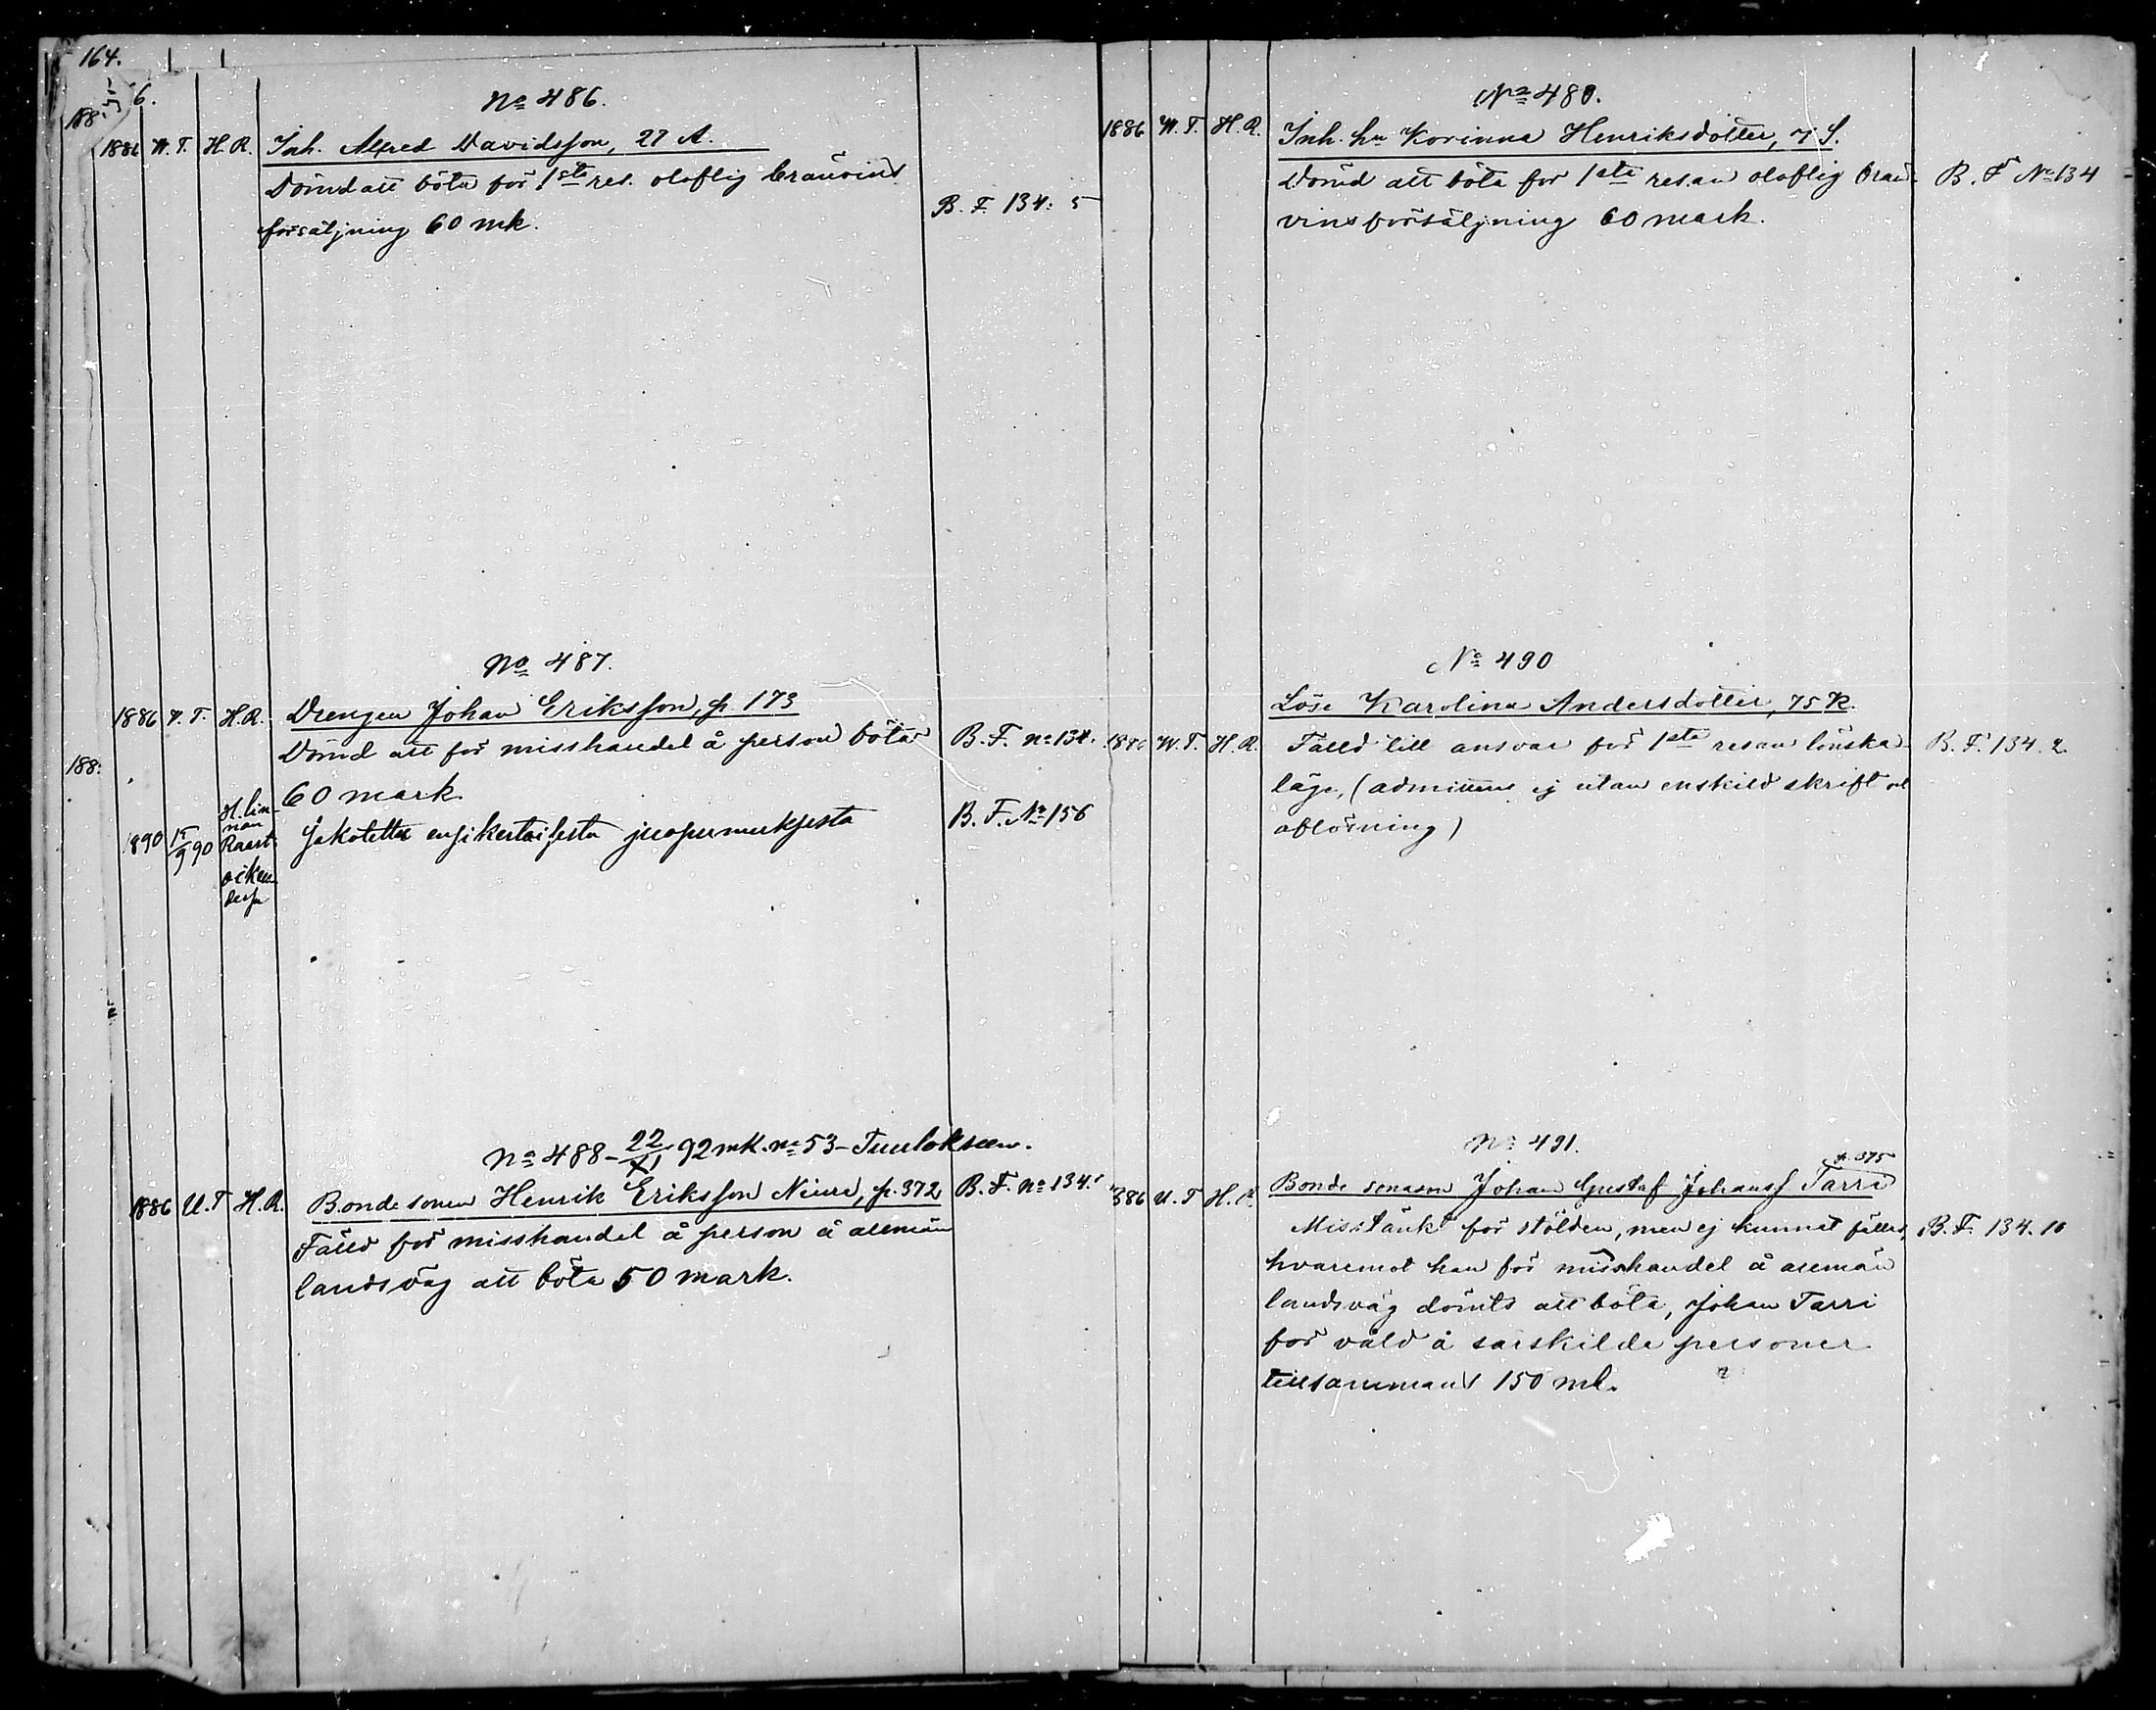 164.
6.
188
No 486.
1886 W. T. H. R. Inh. Alfred Davidsson, 27 A.
Dömd att böta för 1sta res. oloflig bränvins
försäljning 60 mk.
B. F. 134: 5
No 487.
1886 V. T. H. R. Drengen Johan Eriksson, p. 173
Dömd att för misshandel å person böta
60 mark.
B. F. no 134.
188.
1890 15/9 90 H.lin-
nan
Raast.
oikeu-
dessa
Sakotettu juopumuksesta
B. F. No 156
No 488 - 22/XI 92 mk. no 53 -
1886 U. T H. R. Bondesonen Henrik Eriksson p. 372
Fälld för misshandel å person å allmän
landsväg att böta 50 mark.
B. F. no 134.
No 489.
1886 W. T. H. R. Inh. hu Korinna Henriksdotter, 7 S.
Dömd att böta för 1sta resan oloflig brän-
vinsförsäljning 60 mark.
B. F No 134
No 490
Löse Karolina Andersdotter, 75 K.
1886 W. T. H. R. Fälld till ansvar för 1sta resan lönska
läge, (admitteras ej utan enskild skrift o
aflösning)
B. F. 134. 2.
No 491.
p. 375
1886 U. T H. R. Bonde sonason Johan Gustaf Johanss Tarri
Misstänkt för stölden, men ej kunnat fällas,
hvaremot han för misshandel å allmän
landsväg dömts att böta, Johan Tarri
för våld å särskilde personer
tillsammans 150 mk.
B. F. 134. 10